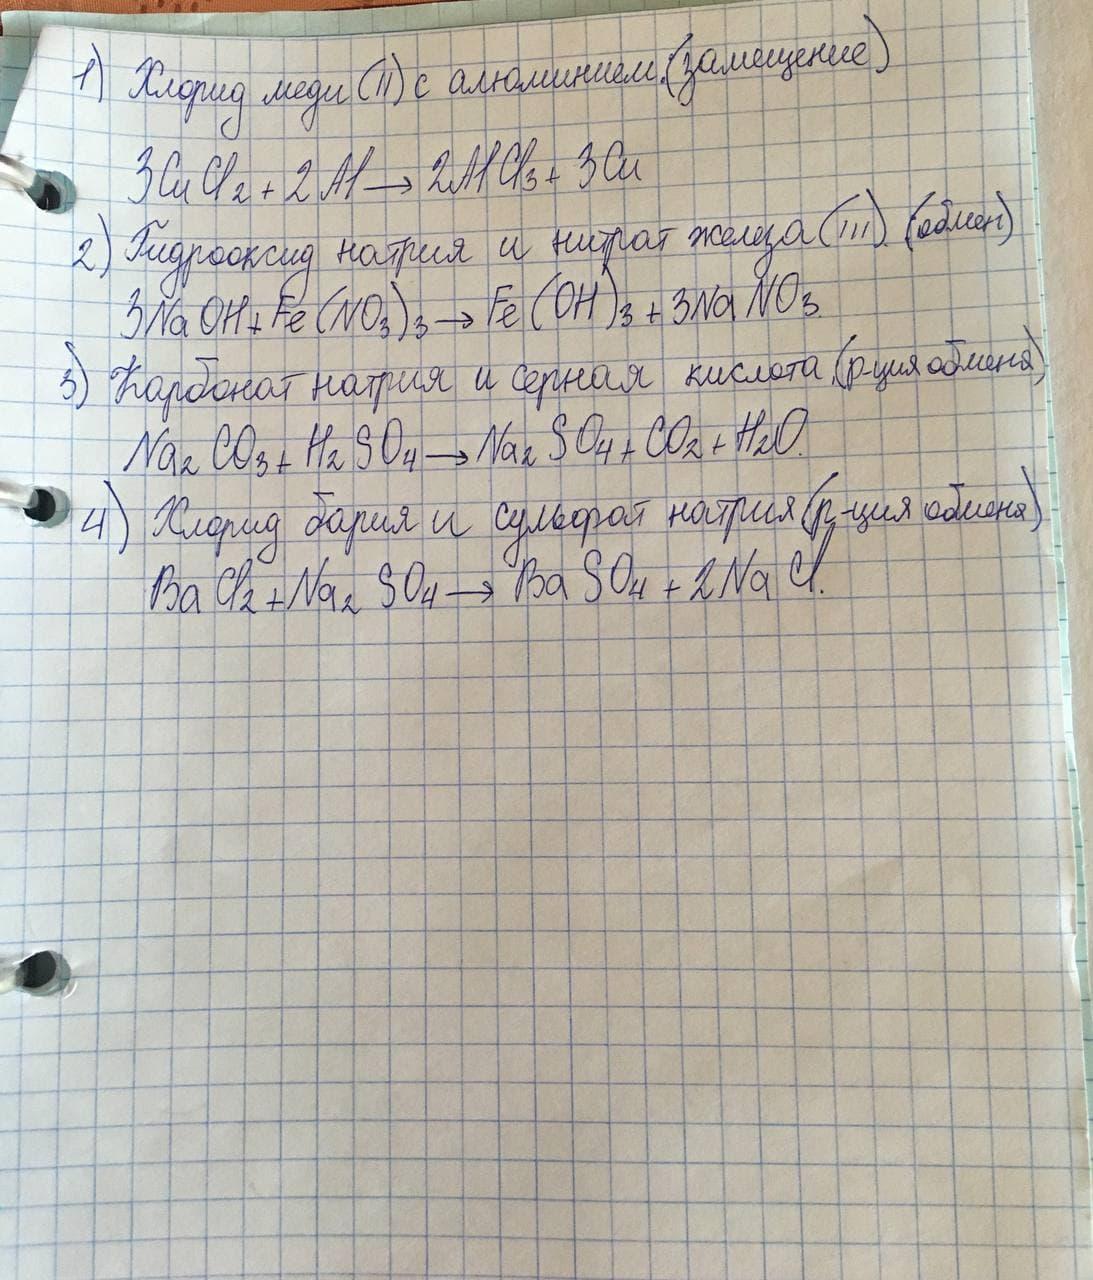 1) Хлорид меди (II) с алюминием. (замещение)
3CuCl₂ + 2Al → 2AlCl₃ + 3Cu
2) Гидрооксид натрия и нитрат железа (III). (обмен)
3NaOH + Fe(NO₃)₃ → Fe(OH)₃ + 3NaNO₃.
3) Карбонат натрия и серная кислота. (р-ция обмена)
Na₂CO₃ + H₂SO₄ → Na₂SO₄ + CO₂ + H₂O.
4) Хлорид бария и сульфат натрия (р-ция обмена)
BaCl₂ + Na₂SO₄ → BaSO₄ + 2NaCl.